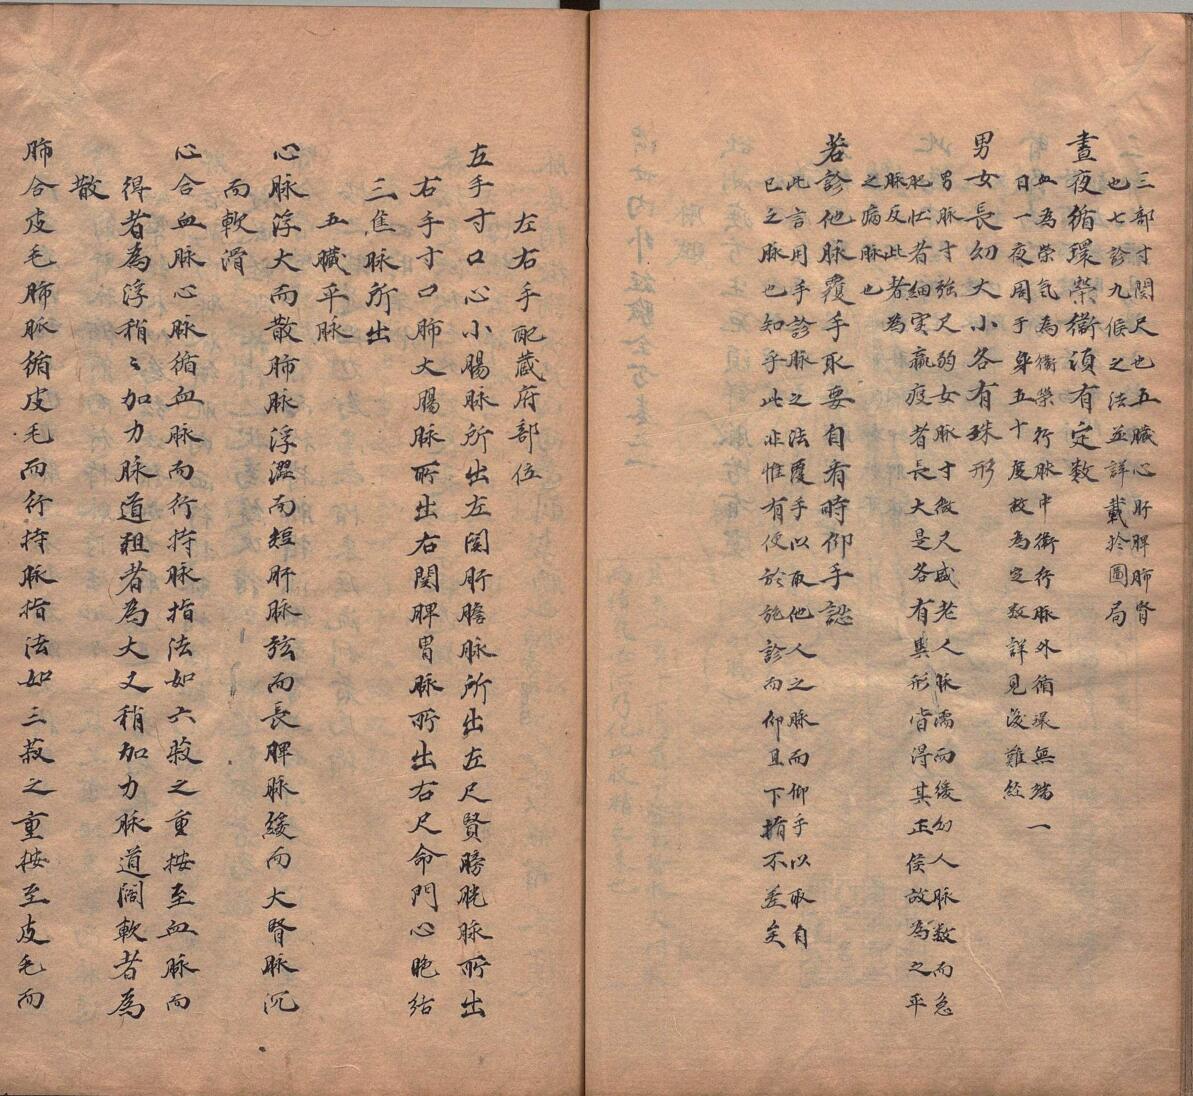 三部寸関尺也五臓心肝脾肺腎
也七診九候之法並詳載扵圖局
晝夜循環榮衞須有定数
血為榮氣為衛榮行脉中衛行脉外循環無端一
日一夜周于身五十度故為定数詳見後難経
男女長幼大小各有殊形
男脉寸強尺弱女脉寸微尺盛老人脉濡而緩幼人脉数而急
肥壮者細実羸瘦者長大是各有異形皆得其正候故為之平
脉反此者為
之病脉也
若診他脉覆手取要自看時仰手認
此言用手診脉之法覆手以取他人之脉而仰手以取自
己之脉也知乎此非惟有便於施診而仰且下指不差矣
左右手配蔵府部位
左手寸口心小膓脉所出左関肝膽脉所出左尺賢膀胱脉所出
右手寸口肺大膓脉所出右関脾胃脉所出右尺命門心胞絡
三焦脉所出
五臓平脉
心脉浮大而散肺脉浮澀而短肝脉弦而長脾脉緩而大腎脉沉
而軟滑
心合血脉心脉循血脉而行持脉指法如六菽之重按至血脉而
得者為浮稍〻加力脉道粗者為大又稍加力脉道濶軟者為
散
肺合皮毛肺脉循皮毛而行持脉指法如三菽之重按至皮毛而